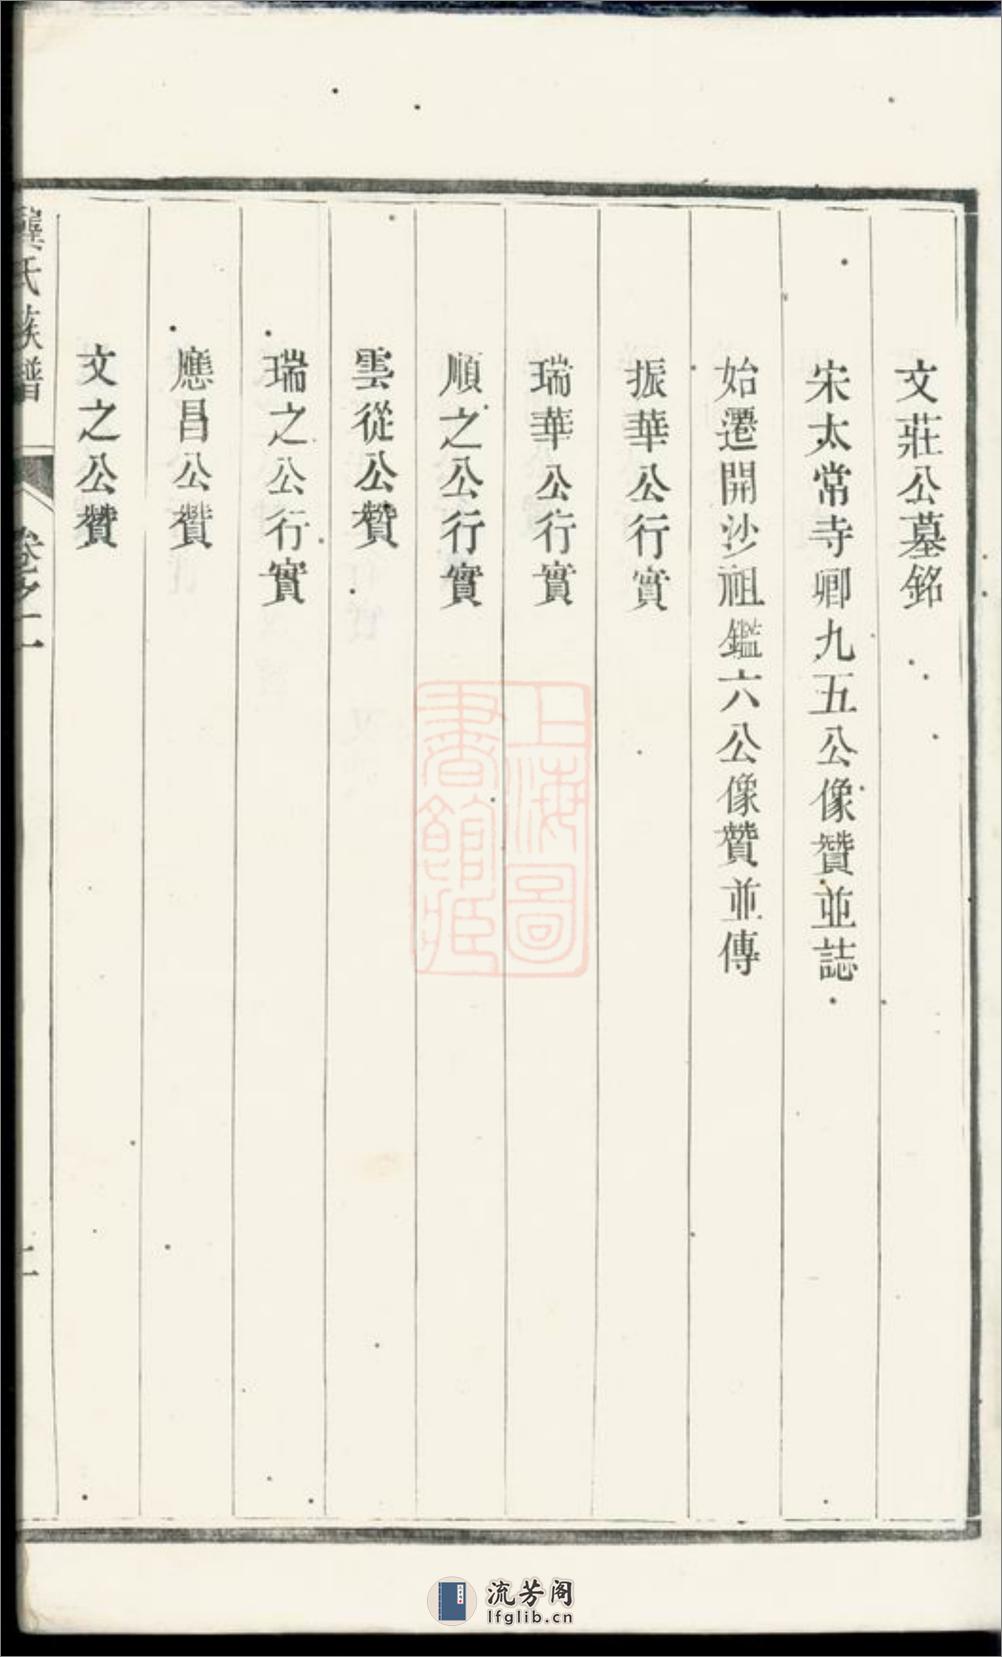 文莊公墓銘
宋太常寺卿九五公像贊並誌
始遷開沙祖鑑六公像贊並傳
振華公行實
瑞華公行實
順之公行實
雲從公贊
瑞之公行實
應昌公贊
文之公贊
龔氏族譜
卷之一
二
上海圖
書館藏
流芳阁
lfglib.cn